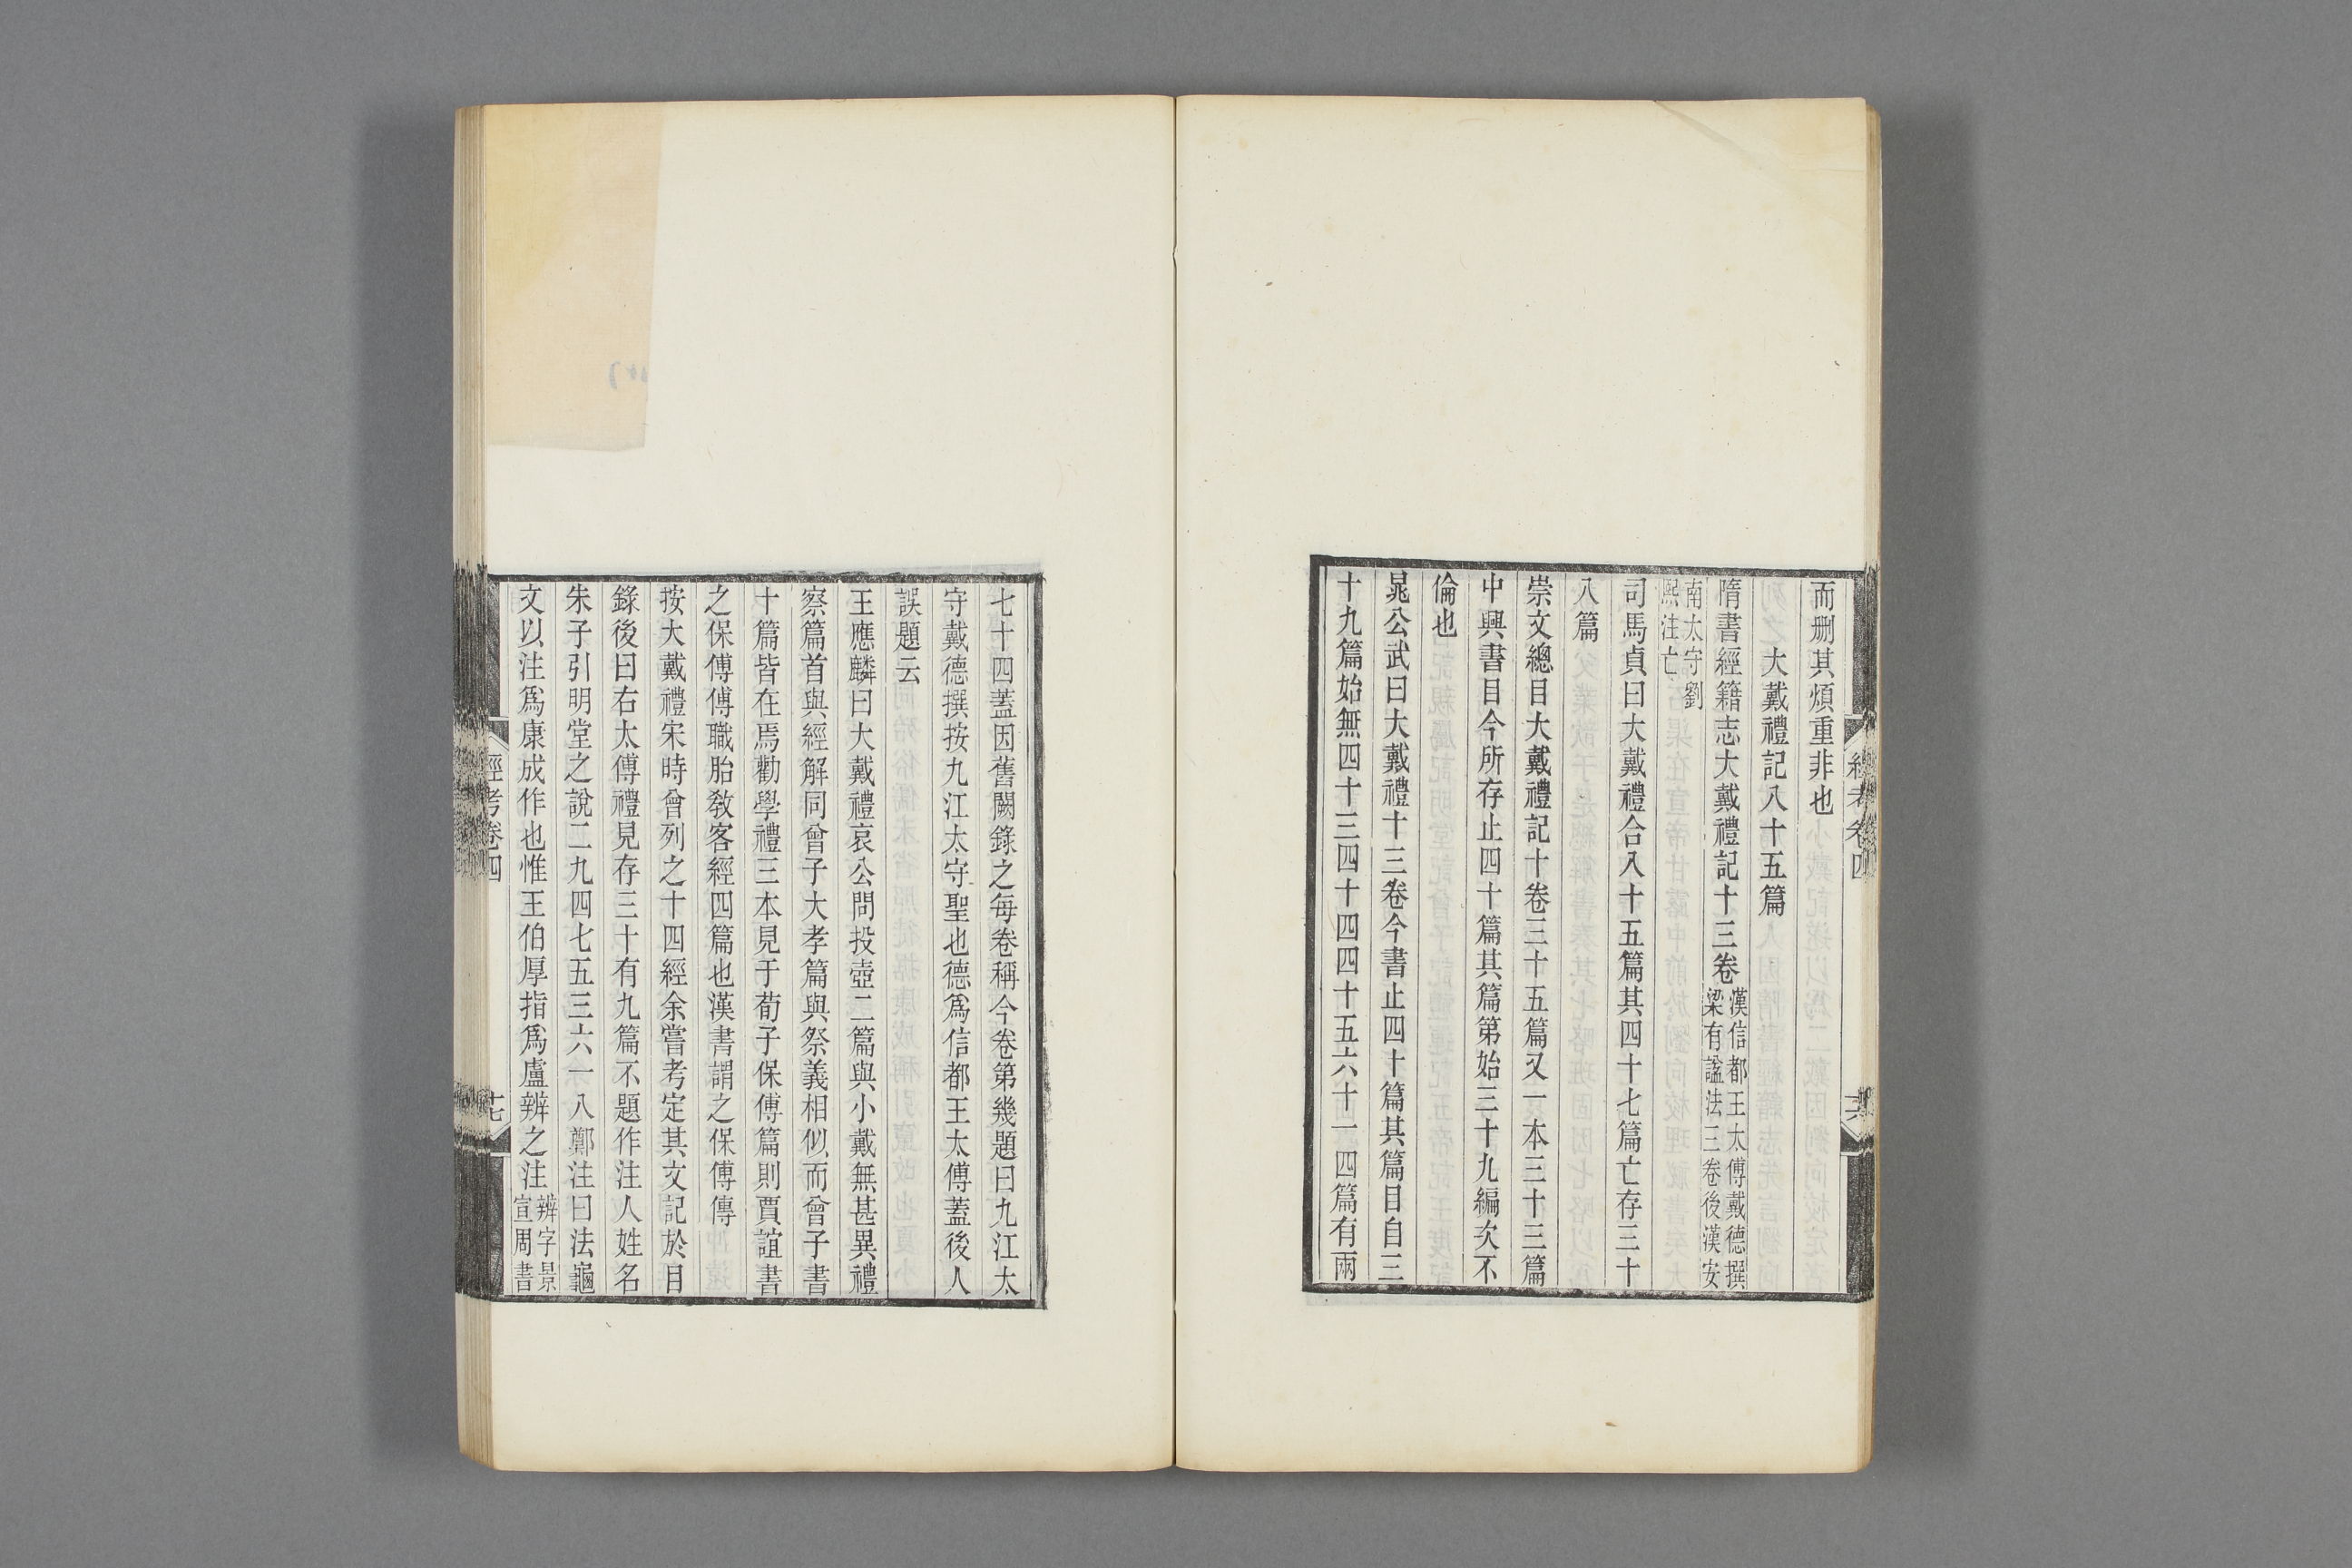 而刪其煩重非也
大戴禮記八十五篇
隋書經籍志大戴禮記十三卷
漢信都王太傅戴德撰
梁有謚法三卷後漢安
南太守劉
熙注亡
司馬貞曰大戴禮合八十五篇其四十七篇亡存三十
八篇
崇文總目大戴禮記十卷三十五篇又一本三十三篇
中興書目今所存止四十篇其篇第始三十九編次不
倫也
晁公武曰大戴禮十三卷今書止四十篇其篇目自三
十九篇始無四十三四十四四十五六十一四篇有兩
七十四蓋因舊闕錄之每卷稱今卷第幾題曰九江太
守戴德撰按九江太守聖也德爲信都王太傅蓋後人
誤題云
王應麟曰大戴禮哀公問投壺二篇與小戴無甚異禮
察篇首與經解同曾子大孝篇與祭義相似而曾子書
十篇皆在焉勸學禮三本見于荀子保傅篇則賈誼書
之保傅傅職胎教容經四篇也漢書謂之保傅傳
按大戴禮宋時曾列之十四經余嘗考定其文記於目
錄後曰右太傅禮見存三十有九篇不題作注人姓名
朱子引明堂之說二九四七五三六一八鄭注曰法龜
文以注爲康成作也惟王伯厚指爲盧辨之注
辨字景
宣周書
經考卷四
十七